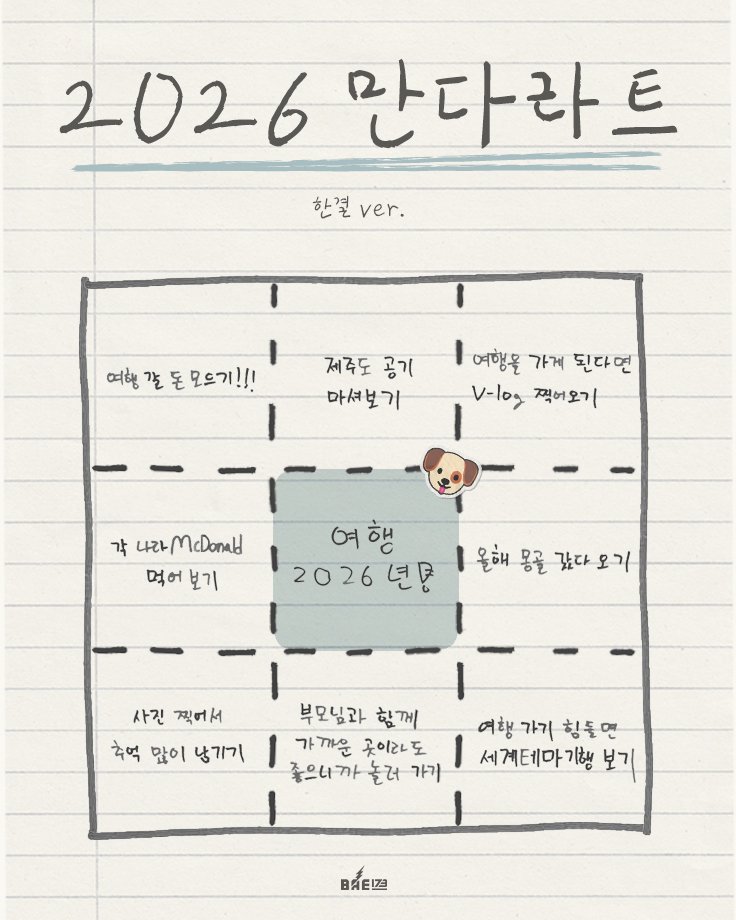 2026 만다라트
한결 ver.
여행 갈 돈 모으기!!!
제주도 공기
마셔보기
여행을 가게 된다면
V-log 찍어오기
각 나라 McDonald
먹어 보기
여행
2026 년용
올해 몽골 갔다 오기
사진 찍어서
추억 많이 남기기
부모님과 함께
가까운 곳이라도
좋으니까 놀러 가기
여행 가기 힘들면
세계테마기행 보기
BAE173